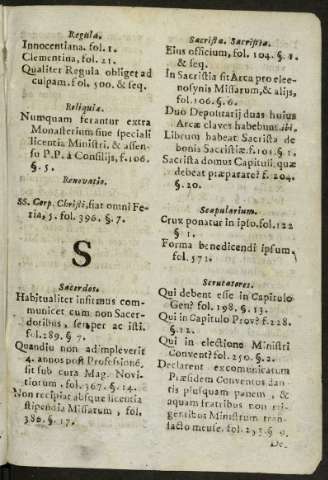 Regula.
Innocentiana. fol. 1.
Clementina, fol. 21.
Qualiter Regula obliget ad
culpam. fol. 500. & seq.
Reliquiæ.
Numquam ferantur extra
Monasterium sine speciali
licentia Ministri, & assen-
su P.P. à Consilijs, f. 106.
§. 5.
Renovatio.
SS. Corp. Christi, fiat omni Fe-
ria, 5. fol. 396. §. 7.
S
Sacerdos.
Habitualiter infirmus com-
municet cum non Sacer-
dotibus, semper ac isti.
fol. 289. §. 7.
Quandiu non adimpleverit
4. annos post Professionē,
sit sub cura Mag. Novi-
tiorum, fol. 367. §. 14.
Non recipiat absque licentia
stipendia Missarum, fol.
386. §. 17.
Sacrista. Sacristia.
Eius officium, fol. 104. §. 1.
& seq.
In Sacristia sit Arca pro elee-
mosynis Missarum, & alijs,
fol. 106. §. 6.
Duo Depositarij duas huius
Arcæ claves habebunt ibi.
Librum habeat Sacrista de
bonis Sacristiæ. f. 105. §. 1.
Sacrista domus Capituli, quæ
debeat præparare? f. 204.
§. 20.
Scapularium.
Crux ponatur in ipso. fol. 122
§ 1.
Forma benedicendi ipsum,
fol. 571.
Scrutatores.
Qui debent esse in Capitulo
Gen? fol. 198. §. 13.
Qui in Capitulo Prov? f. 228.
§. 12.
Qui in electione Ministri
Convent? fol. 250. §. 2.
Declarent excomunicatum
Præsidem Conventus dan-
tis plusquam panem, &
aquam fratribus non eli-
gentibus Ministrum tran-
sacto mense. fol. 253. § 9.
De-